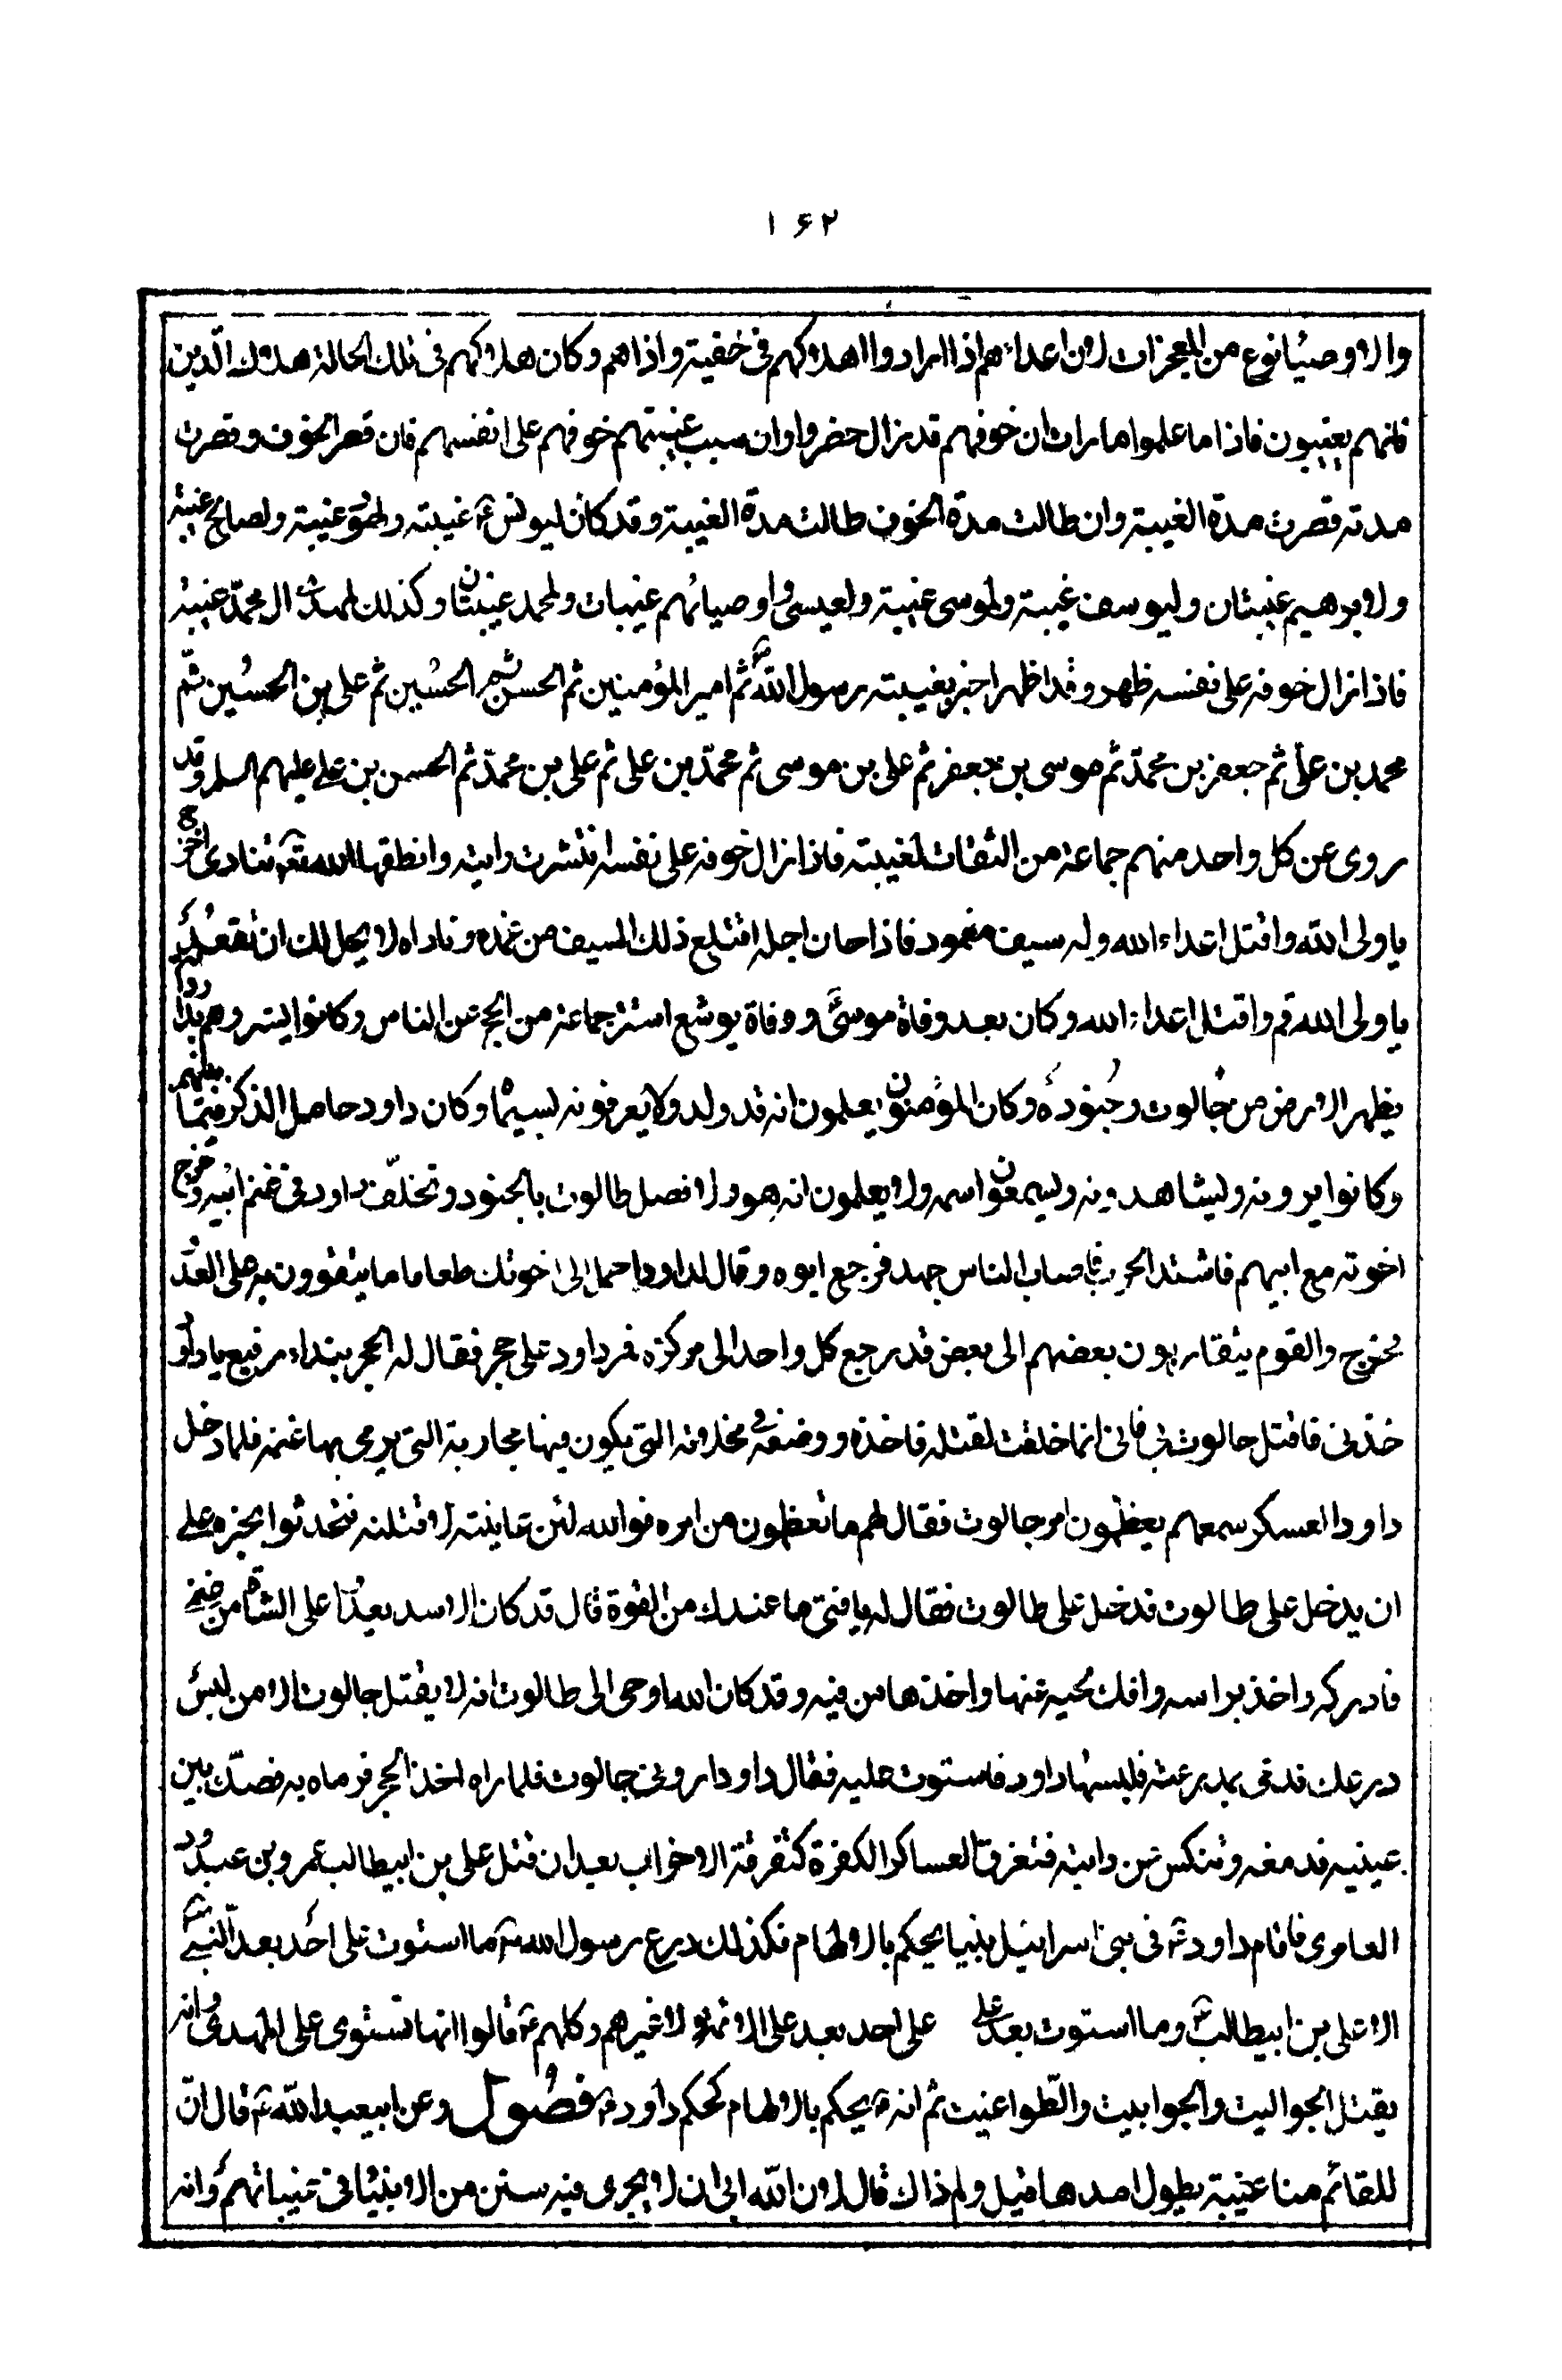 ١۶٢
والاوصيا نوع من المعجزات لان اعداءهم اذا ارادوا اهلاكهم فى خفية واذاهم وكان هلاكهم فى تلك الحالة هلاك الدين
فانهم يغيبون فاذا ما علموا مارات ان خوفهم قد زال حضروا وان سبب غيبتهم خوفهم على انفسهم فان قصر الخوف وقصرت
مدته قصرت مدة الغيبة وان طالت مدة الخوف طالت مدة الغيبة وقد كان ليونس ع غيبته ولهود غيبة ولصالح غيبة
ولابرهيم غيبتان وليوسف غيبة ولموسى غيبة ولعيسى واوصيائهم غيبات ولمحمد غيبتان وكذلك لمهدى ال محمد غيبة
فاذا زال خوفه على نفسه ظهر وقد اظهر اخبر بغيبته رسول الله ص ثم امير المؤمنين ثم الحسن ثم الحسين ثم على بن الحسين ثم
محمد بن على ثم جعفر بن محمد ثم موسى بن جعفر ثم على بن موسى ثم محمد بن على ثم على بن محمد ثم الحسن بن على عليهم السلم وقد
روى عن كل واحد منهم جماعة من الثقات لغيبته فاذا زال خوفه على نفسه انتشرت رايته وانطقها الله تع فتنادى اخرج
يا ولى الله واقتل اعداء الله وله سيف مغمود فاذا حان اجله اقتلع ذلك السيف من غمده وناداه لا يحل لك ان تقعد
يا ولى الله قم واقتل اعداء الله وكان بعد وفاة موسى ع ووفاة يوشع استتر جماعة من الحجج عن الناس وكانوا يبشروهم بداود
يظهر الارض من جالوت وجنوده وكان المؤمنون يعلمون انه قد ولد ولا يعرفونه بسيما وكان داود خامل الذكر فيما بينهم
وكانوا يرونه ويشاهدونه ويسمعون اسمه ولا يعلمون انه هو ولما فصل طالوت بالجنود وتخلف داود فى غنم ابيه وخرج
اخوته مع ابيهم فاشتد الحرب فاصاب الناس جهد فرجع ابوه وقال لداود احمل الى اخوتك طعاما ما يتقوون به على العدو
فخرج والقوم يتقاربون بعضهم الى بعض قد رجع كل واحد الى مركزه فمر داود على حجر فقال له الحجر بنداء رفيع يا داود
خذنى فاقتل جالوت بى فانى انما خلقت لقتله فاخذه ووضعه فى مخلاته التى يكون فيها حجارته التى يرمى بها غنمه فلما دخل
داود العسكر سمعهم يعظمون امر جالوت فقال لهم ما تعظمون من امره فوالله لئن عاينته لاقتلنه فتحدثوا بخبره على
ان يدخل على طالوت فدخل على طالوت فقال له يا فتى ما عندك من القوة قال قد كان الاسد يعدو على الشاة من غنمى
فادركه واخذ براسه وافك لحيه عنها واخذها من فيه وقد كان الله اوحى الى طالوت انه لا يقتل جالوت الا من لبس
درعك فدعى بدرعه فلبسها داود فاستوت عليه فقال داود ارونى جالوت فلما راه اخذ الحجر فرماه به فصك بين
عينيه فدمغه وتنكس عن دابته فتفرق العساكر الكفرة كتفرقة الاحزاب بعد ان قتل على بن ابيطالب عمرو بن عبدود
العامرى فاقام داود ع فى بنى اسرائيل نبيا يحكم بالالهام فكذلك درع رسول الله ص ما استوت على احد بعد النبى ص
الا على بن ابيطالب ع وما استوت بعد على على احد بعد على الائمة ولا غيرهم وكلهم ع قالوا انها تستوى على المهدى وانه
يقتل الجواليت والجوابيت والطواغيت ثم انه ع يحكم بالالهام كحكم داود ع فصول وعن ابيعبد الله ع قال ان
للقائم منا غيبة يطول امدها فقيل ولم ذاك قال لان الله ابى ان لا يجرى فيه سنن من الانبيا فى غيباتهم وانه